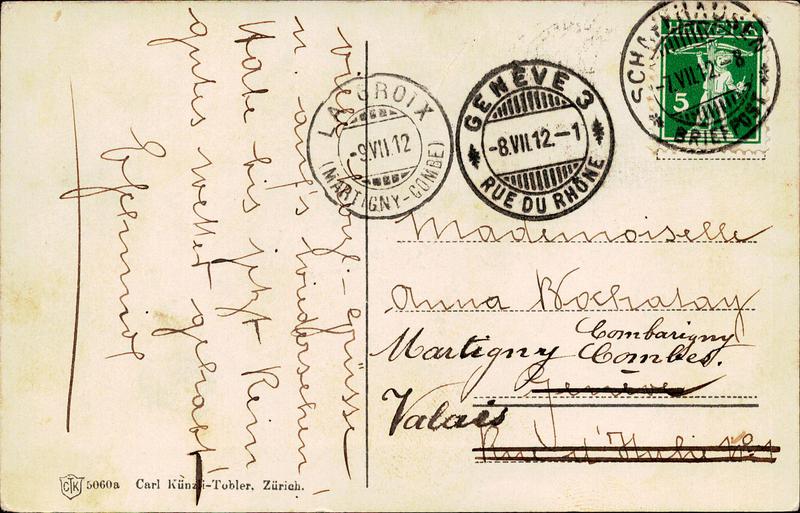 viele herzl. Grüsse
u. auf's Wiedersehen!
Habe bis jetzt kein
gutes Wetter gehabt!
LA CROIX
-9.VII.12
(MARTIGNY-COMBE)
GENÈVE 3
-8.VII.12.-1
RUE DU RHÔNE
SCHAFFHAUSEN
-7.VII.12.-8
BRIEFPOST
HELVETIA
5
Mademoiselle
Anna Bochatay
Combarigny
Martigny Combes.
Genève
Valais
Rue d'Italie No 1
CTK 5060a Carl Künzli-Tobler, Zürich.